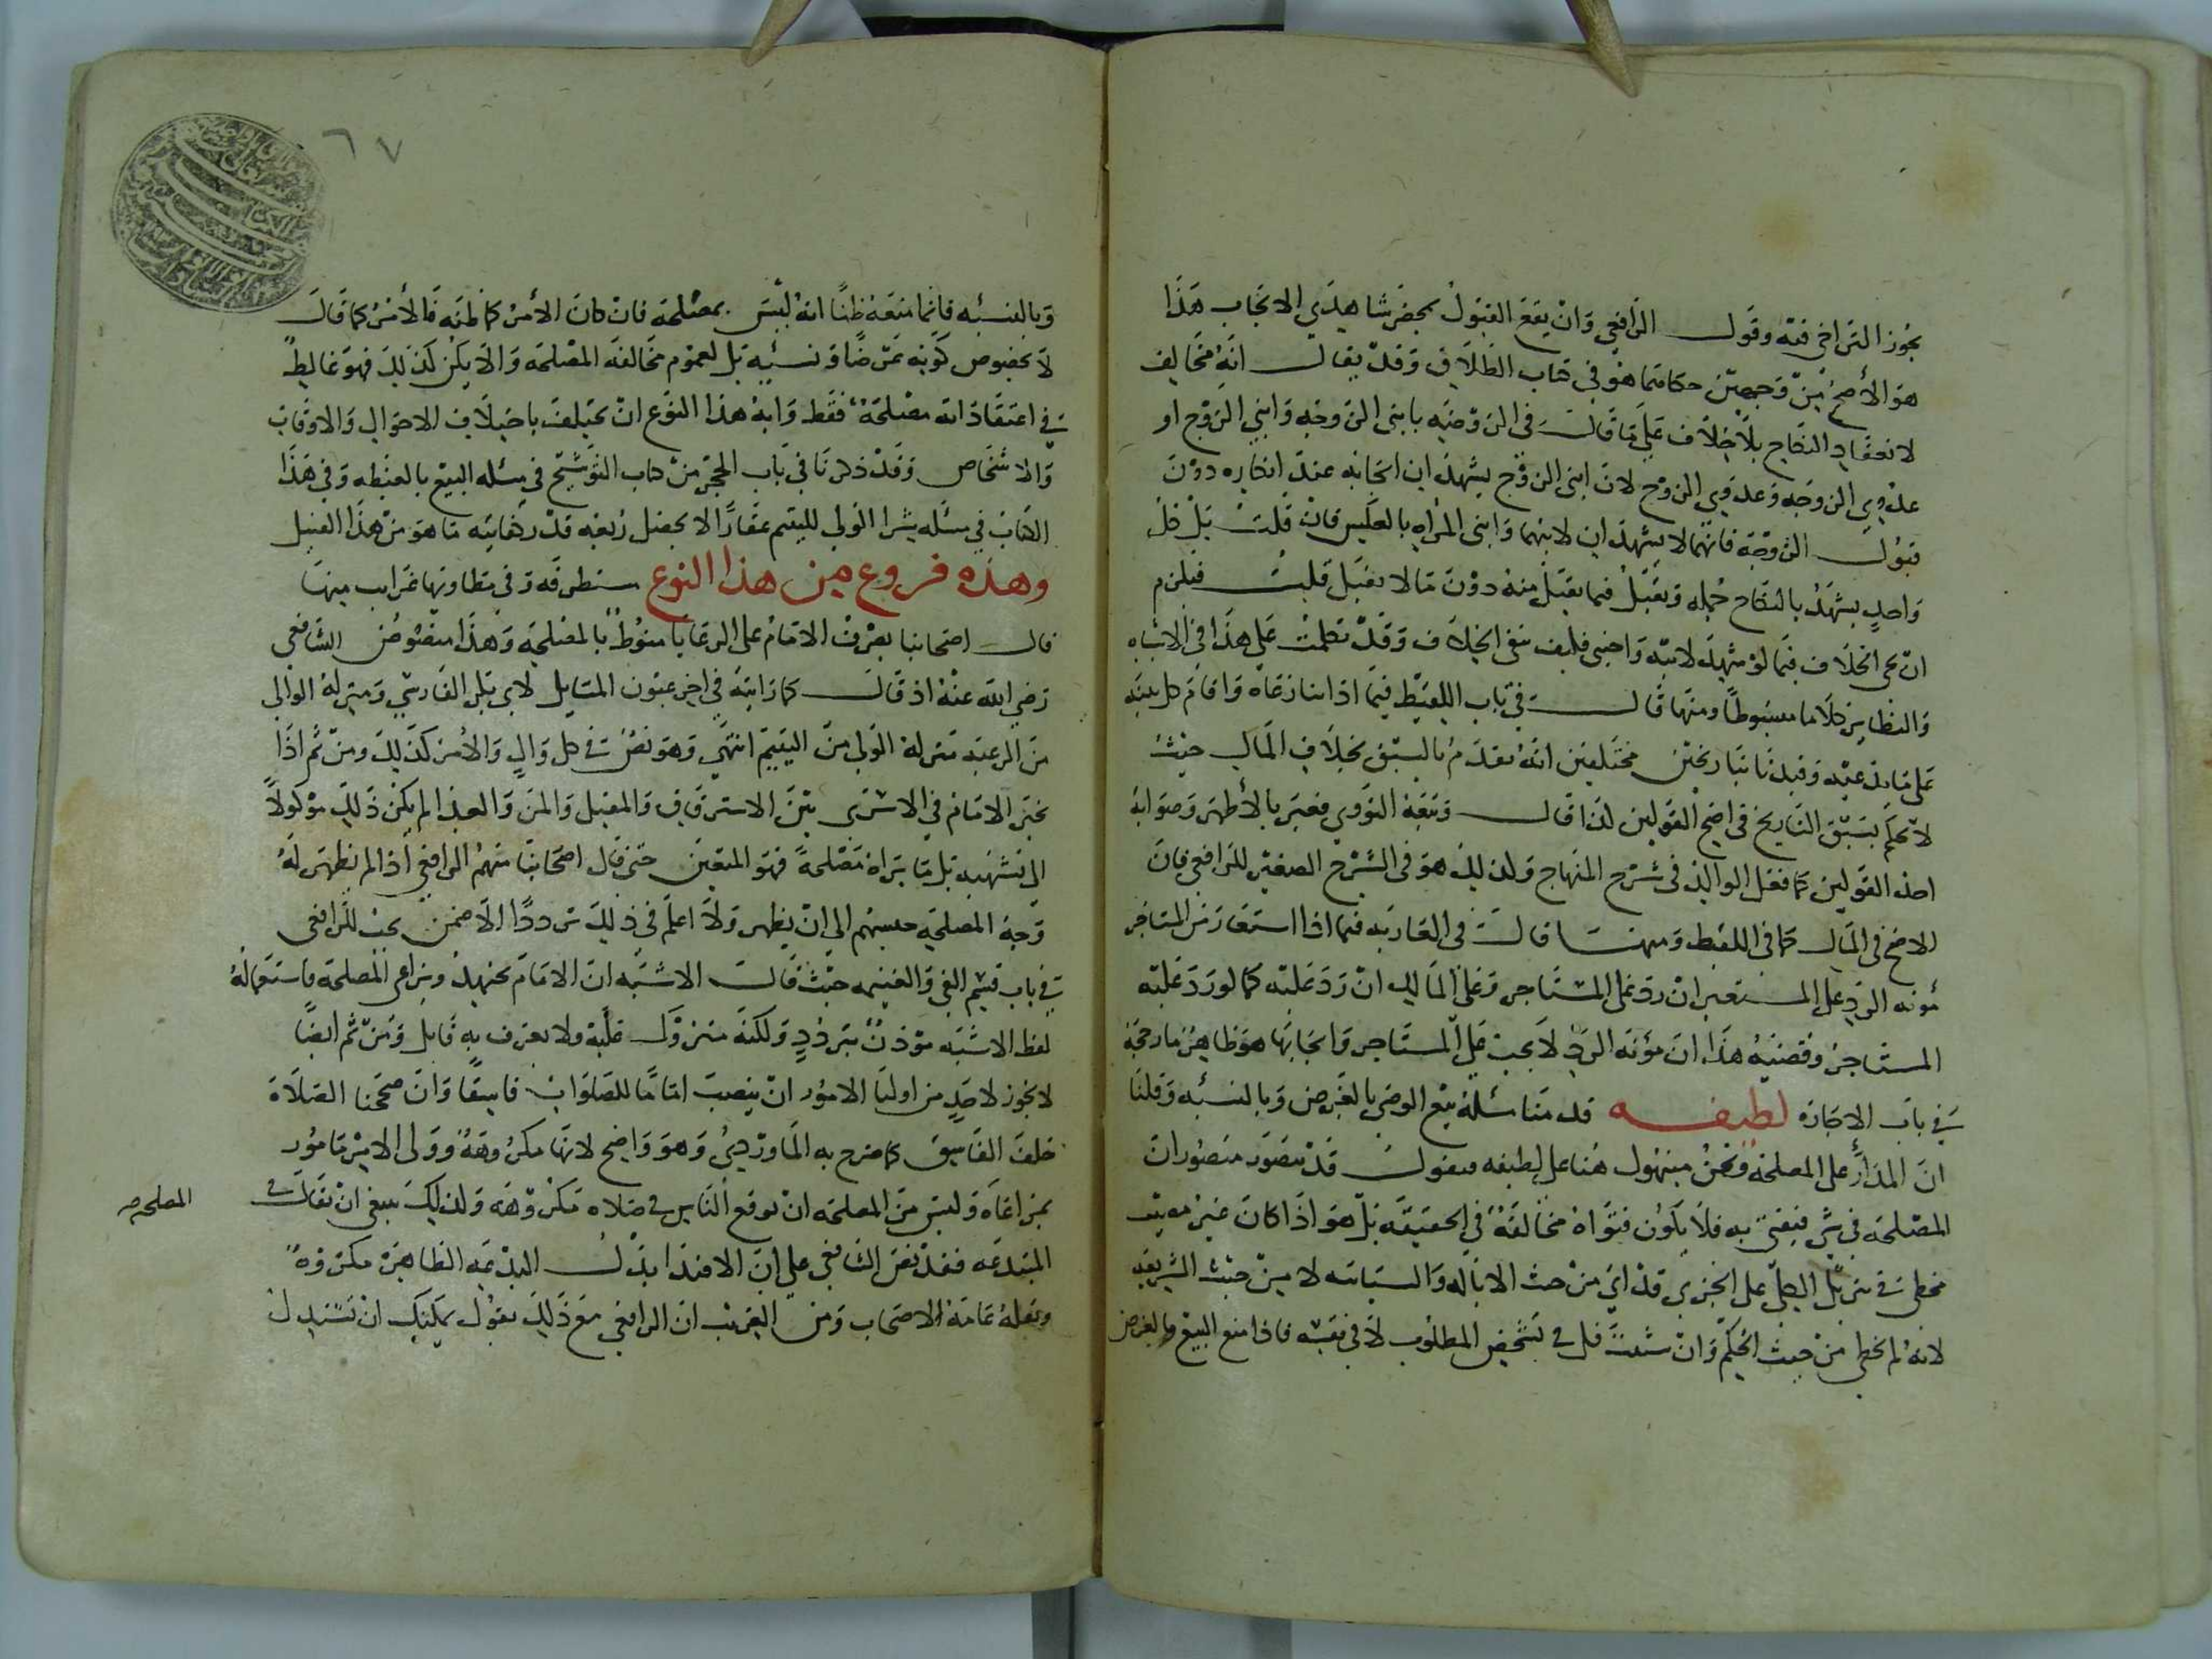 يجوز التراخي فيه وقول الرافعي وان يقع القبول بمحضر شاهدي الايجاب هذا
هو الأصح من وجهين حكاهما هو في كتاب الطلاق وقد يقال انه مخالف
لانعقاد النكاح بلا خلاف على ما قال في الروضه بابني الزوجه وابني الزوج او
عدوي الزوجه وعدوي الزوج لان ابني الزوج يشهدان ايجابه عند انكاره دون
قبول الزوجة فانهما لا يشهدان لابنهما وابني المراه بالعكس فان قلت بل كل
واحد يشهد بالنكاح جمله ويقبل فيما يقبل منه دون ما لا يقبل قلت فيلزم
ان يجي الخلاف فيما لو شهد لابنه واجنبي فليف نفى الخلاف وقد تكلمت على هذا في الاشباه
والنظاير كلاما مبسوطا ومنها قال في باب اللقيط فيما اذا تنازعاه واقام كل بينه
على ما يدعيه وقيدتا بتاريخين مختلفين انه يقدم بالسبق بخلاف المال حيث
لا يحكم بسبق التاريخ في اصح القولين كذا قال وتبعه النووي فعبر بالأظهر وصوابه
احد القولين كما فعل الوالد في شرح المنهاج وكذلك هو في الشرح الصغير للرافعي فان
الاصح في المال كما في اللقيط ومنها قال في العاريه فيما اذا استعار من المستاجر
مؤنه الرد على المستعير ان رد على المستاجر وعلى المالك ان رد عليه كما لو رد عليه
المستاجر وقضيه هذا ان مؤنه الرد لا يجب على المستاجر وايجابها هو ظاهر ما رجحه
في باب الاجاره لطيفه قدمنا مسئلة بيع الوصي بالعرض وبالنسئه وقلنا
ان المدار على المصلحة ونحن منبهوك هنا على لطيفه فنقول قد يتصور متصور ان
المصلحه في شي فيفتي به فلا يكون فتواه مخالفة في الحقيقه بل هو اذا كان غير مصيب
مخطئ في تنزيل الكلي على الجزي قد اتي من حيث الاياله والسياسه لا من حيث الشريعه
لانه لم يخط من حيث الحكم وان شئت قل في تشخيص المطلوب لا في نفسه فاذا منع البيع بالعرض
٦٧
وبالنسئه فانما منعه ظنا انه ليس بمصلحه فان كان الأمر كما ظنه فالأمر كما قال
لا بخصوص كونه عرضا ونسئيه بل لعموم مخالفه المصلحه والا يكن كذلك فهو غالط
في اعتقاد انه مصلحة فقط وابة هذا النوع ان يختلف باختلاف الاحوال والاوقات
والاشخاص وقد ذكرنا في باب الحجر من كتاب التوشيح في مسئله البيع بالغبطه وفي هذا
الكتاب في مسئله شرا الولي لليتيم عقارا لا يحصل ريعه قدر كفايته ما هو من هذا القبيل
وهذه فروع من هذا النوع ستطرفه وفي مطاويها غرايب منها
قال اصحابنا تصرف الامام على الرعايا منوط بالمصلحه وهذا منصوص الشافعي
رضي الله عنه اذ قال كما رايته في اخر عيون المسايل لابي بكر الفارسي ومنزلة الوالي
من الرعيه منزلة الولي من اليتيم انتهى وهو نص في كل وال والأمر كذلك ومن ثم اذا
تخير الامام في الاسرى بين الاسترقاق والقتل والمن والفدا لم يكن ذلك موكولا
الى تشهيه بل ما يراه مصلحة فهو المتعين حتى قال اصحابنا منهم الرافعي اذا لم يظهر له
وجه المصلحه حبسهم الى ان يظهر ولا اعلم في ذلك ترددا الا ضمن بحث للرافعي
في باب قسم الفي والغنيمه حيث قال الاشبه ان الامام يجتهد ويراعي المصلحه فاستعماله
لفظ الاشبه مؤذن بتردد ولكنه متروك عليه ولا يعرف به قايل ومن ثم ايضا
لا يجوز لاحد من اوليا الامور ان ينصب اماما للصلوات فاسقا وان صححنا الصلاة
خلف الفاسق كما صرح به الماوردي وهو واضح لانها مكروهة وولي الامر مامور
بمراعاه وليس من المصلحه ان يوقع الناس في صلاه مكروهه ولذلك ينبغي ان يقال في
المصلحه صح
المبتدعه فقد نص الشافعي على ان الاقتدا بذلك البدعيه الظاهره مكروه
ونقله عامة الاصحاب ومن الغريب ان الرافعي مع ذلك يقول يمكنك ان تستدل